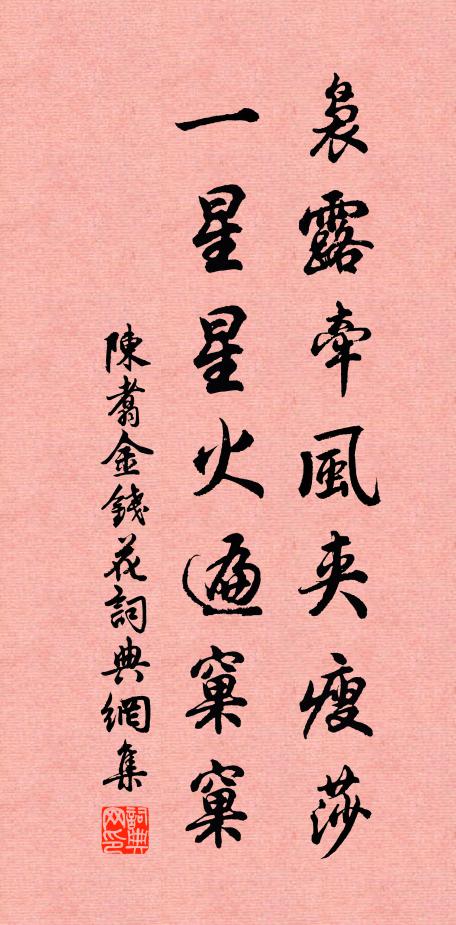 裊露牽風夾瘦莎
一星星火遍窠窠
陳翥金錢花詞典網集
詞典
网印